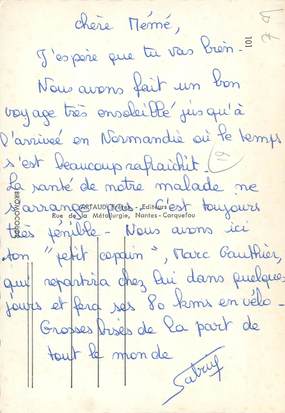 chère Mémé,
J'espère que tu vas bien -
Nous avons fait un bon
voyage très ensoleillé jusqu'à
l'arrivée en Normandie où le temps
s'est beaucoup rafraichit -
La santé de notre malade ne
s'arrange pas. c'est toujours
ARTAUD Frères - Editeurs
Rue de la Métallurgie, Nantes-Carquefou
très pénible - Nous avons ici
ton "petit copain", Marc Gauthier,
qui repartira chez lui dans quelques
jours et fera ses 80 kms en vélo -
Grosses bises de la part de
tout le monde
101